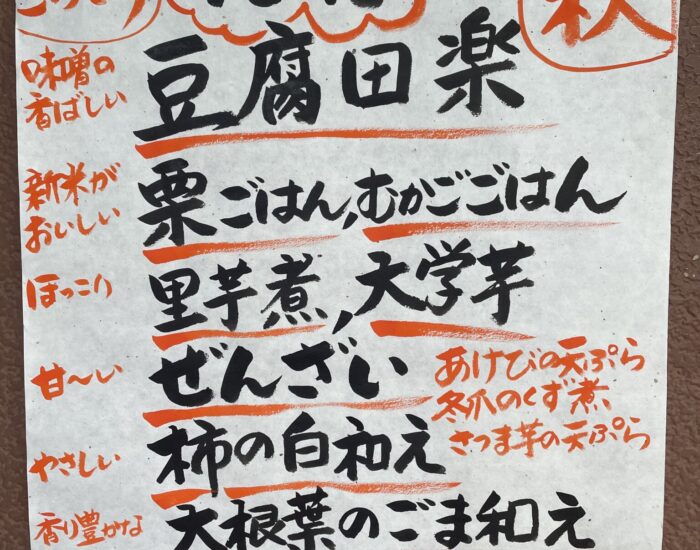 秋
味噌の
香ばしい
豆腐田楽
新米が
おいしい
栗ごはん,むかごごはん
ほっこり
里芋煮,大学芋
甘〜い
ぜんざい
あけびの天ぷら
冬瓜のくず煮、
さつま芋の天ぷら
やさしい
柿の白和え
香り豊かな
大根葉のごま和え